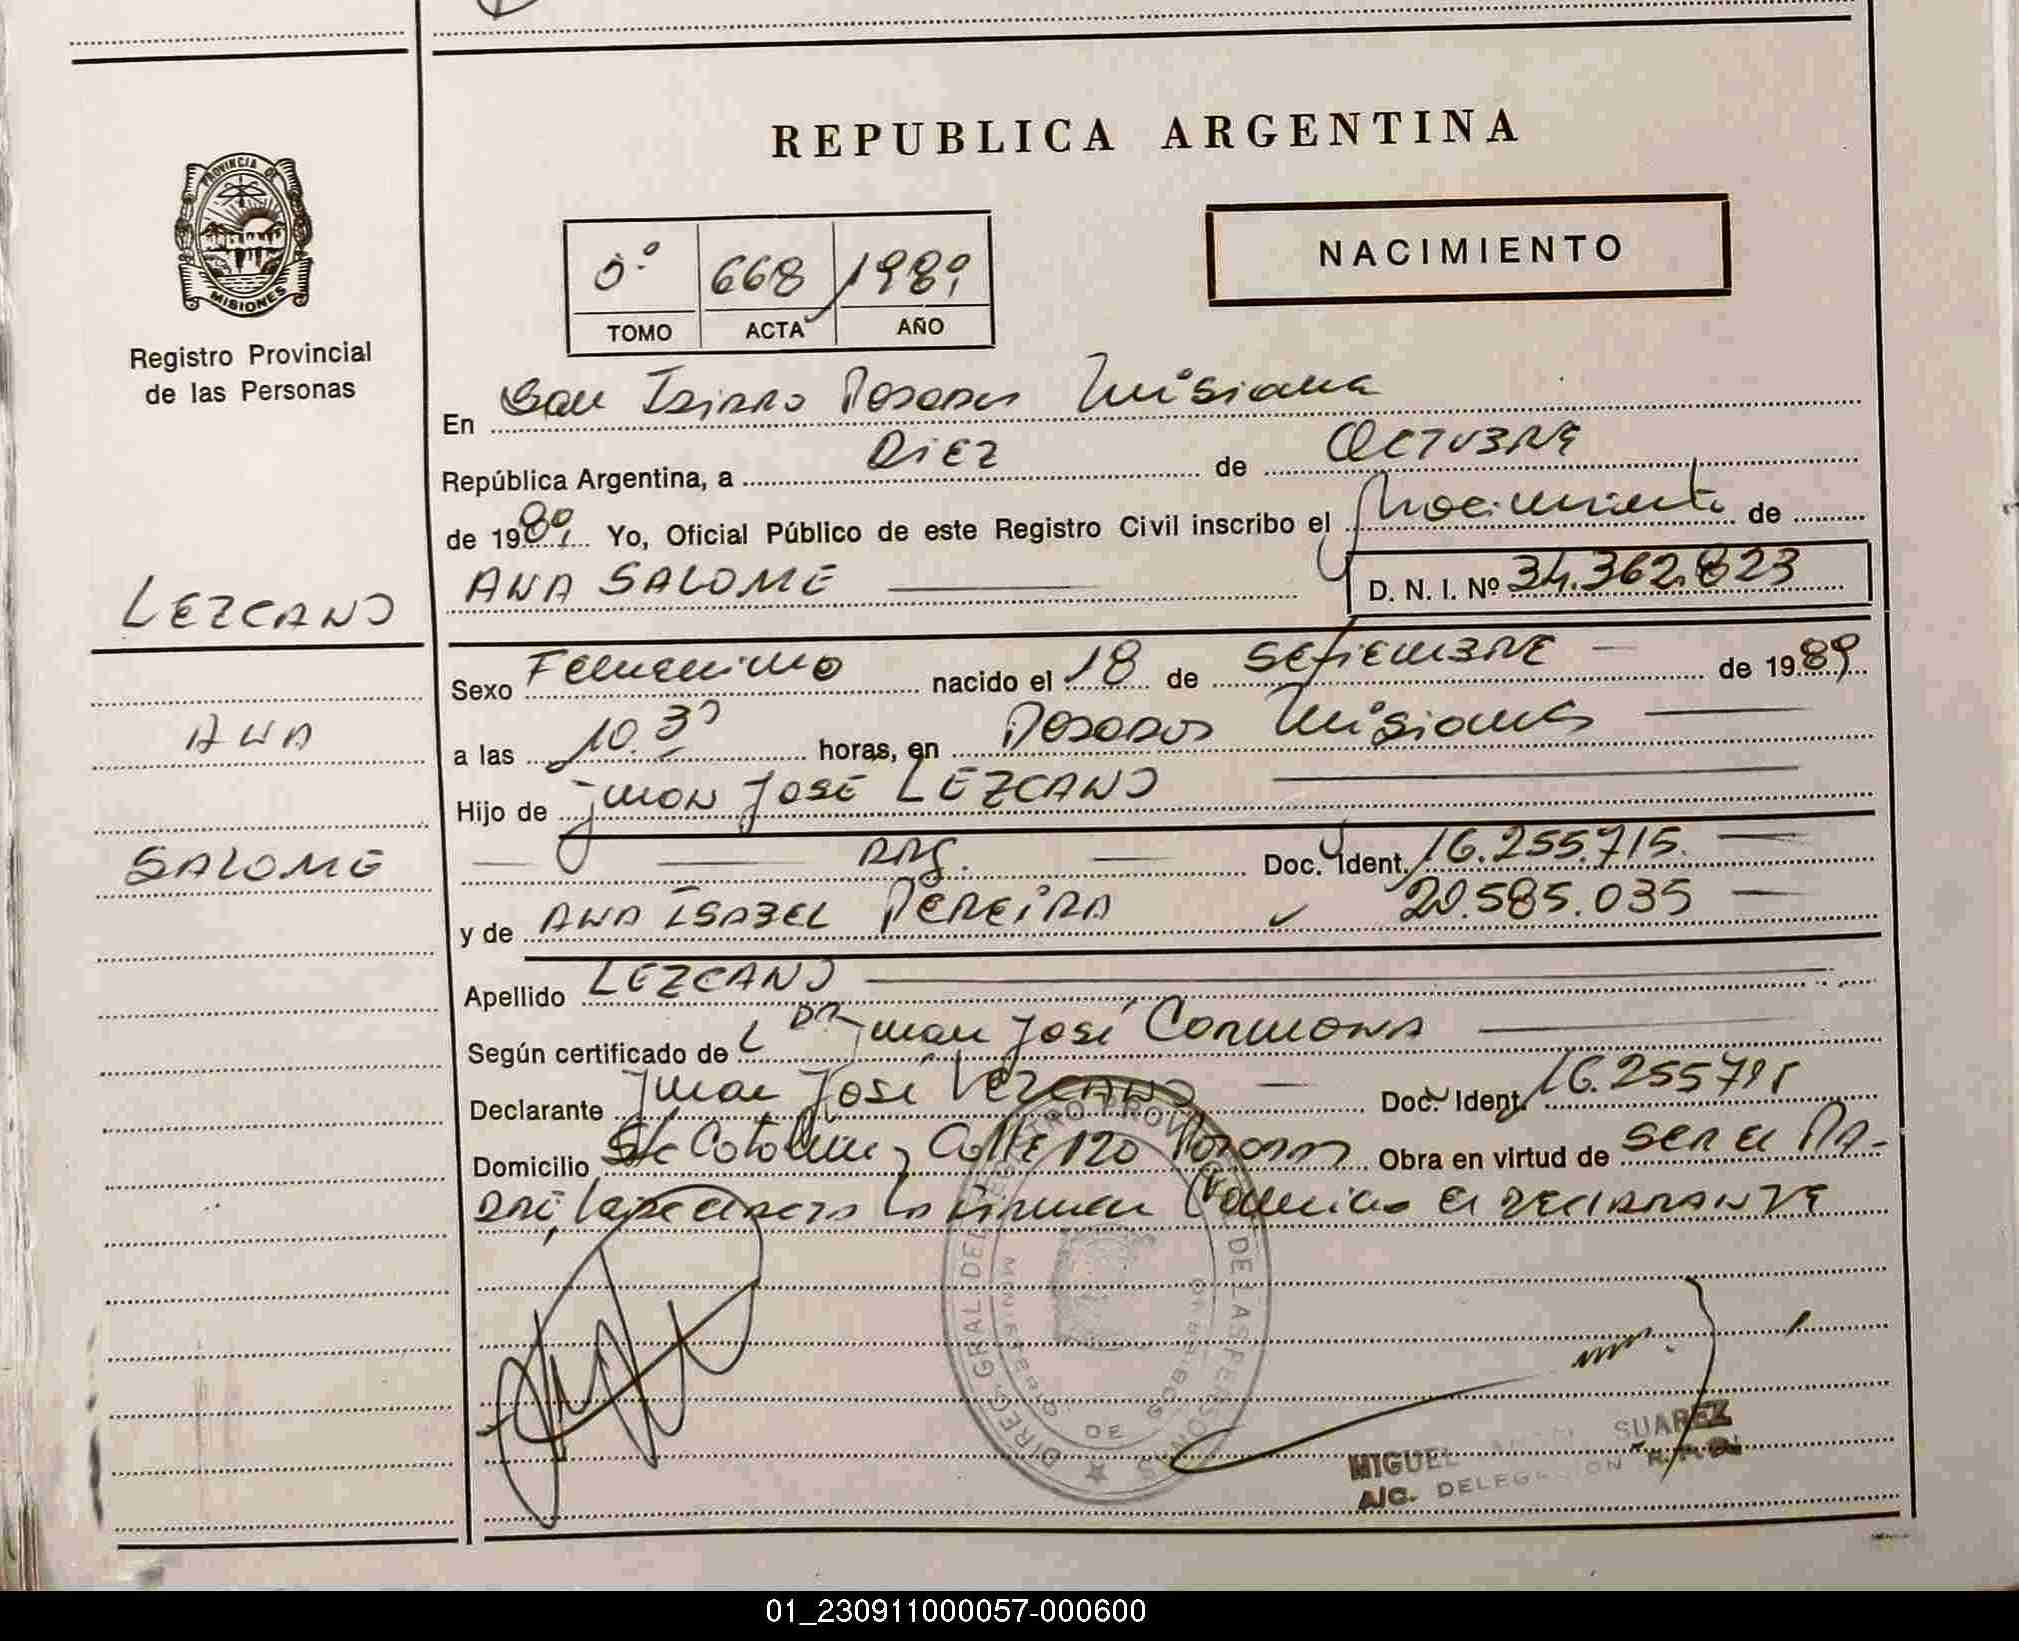 REPUBLICA ARGENTINA
PROVINCIA DE
MISIONES
Registro Provincial
de las Personas
NACIMIENTO
0º 668 1989
TOMO ACTA AÑO
En San Isidro Posadas Misiones
República Argentina, a DIEZ de OCTUBRE
de 1989. Yo, Oficial Público de este Registro Civil inscribo el Nacimiento de
LEZCANO
ANA SALOME D. N. I. Nº 34.362.823
Sexo Femenino nacido el 18 de SETIEMBRE de 1989
ANA
a las 10.30 horas, en Posadas Misiones
Hijo de Juan José LEZCANO
SALOME
ARG. Doc. Ident. 16.255.715.
y de ANA ISABEL PEREIRA 20.585.035
Apellido LEZCANO
Según certificado de L DR Juan José Carmona
Declarante Juan José LEZCANO Doc. Ident. 16.255715
Domicilio Sta Catalina y Calle 120 Posadas Obra en virtud de SER EL PA-
DRE, la firman El DECLARANTE
DIREC. GRAL. DEL REGISTRO PROVINCIAL DE LAS PERSONAS
MINISTERIO DE GOBIERNO
MIGUEL SUAREZ
A/C. DELEGACION R.P.P.
01_230911000057-000600